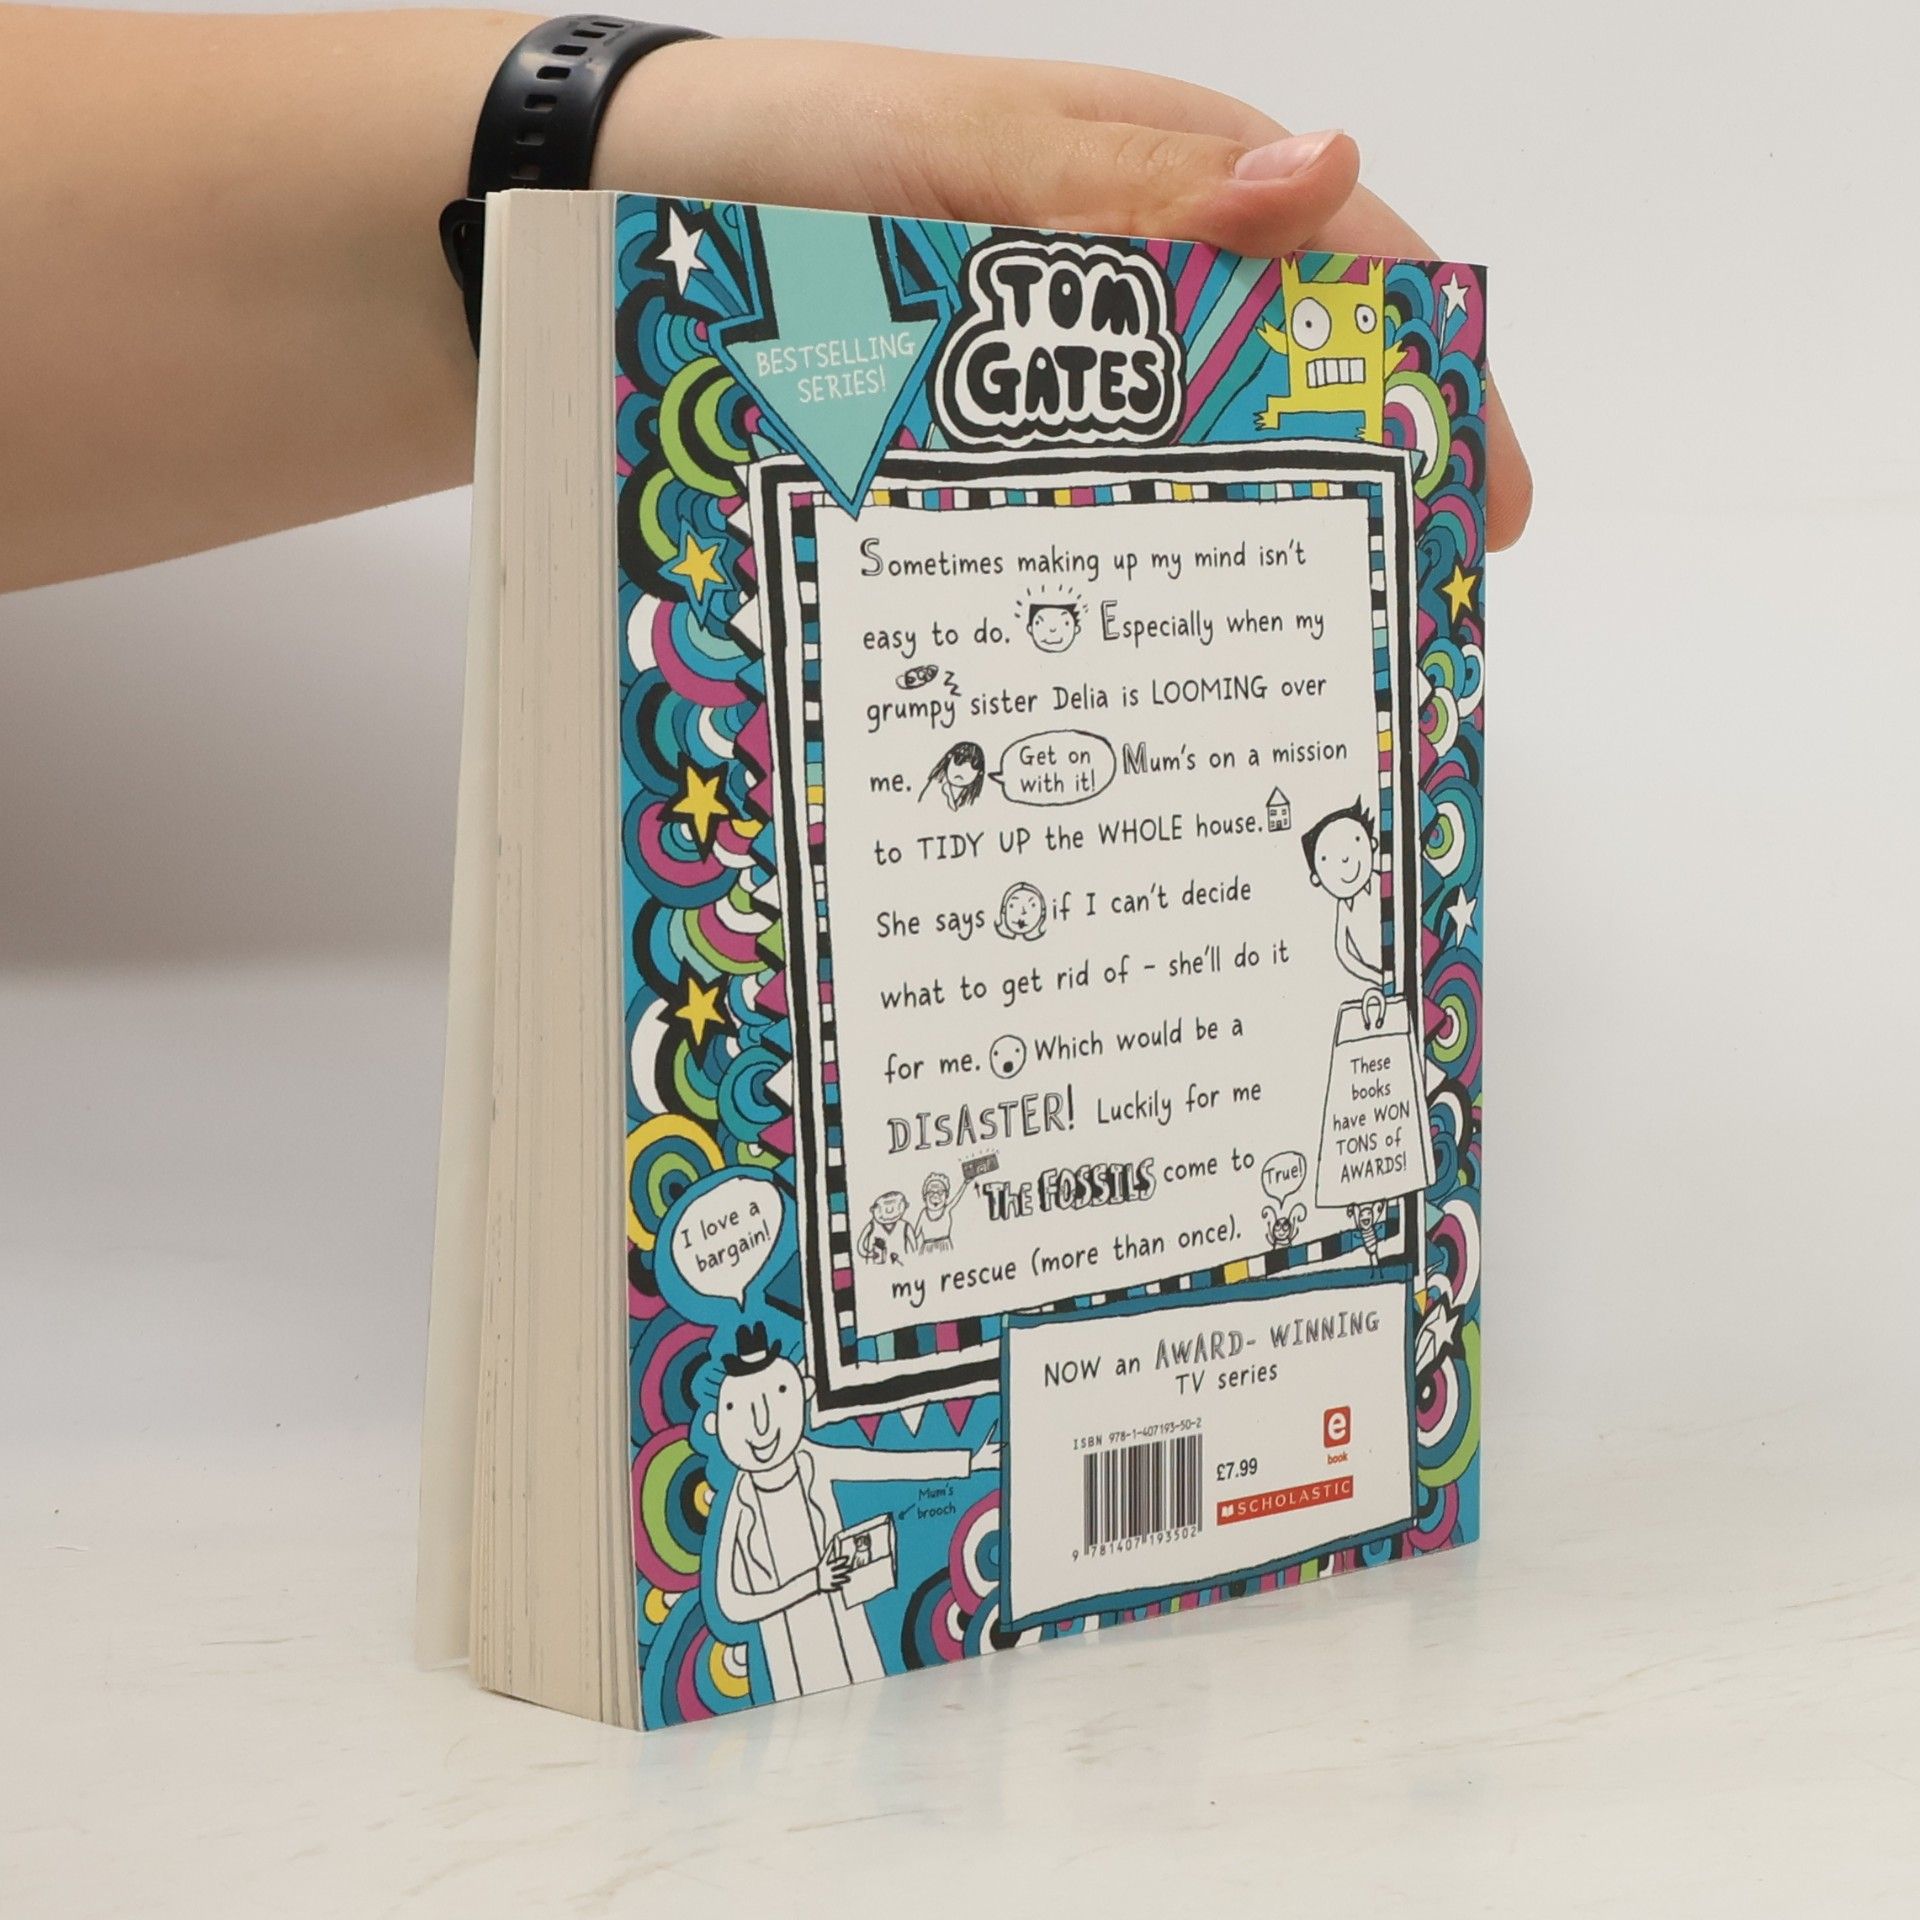 BESTSELLING
SERIES!
TOM
GATES
Sometimes making up my mind isn't
easy to do. Especially when my
grumpy sister Delia is LOOMING over
me. Get on
with it! Mum's on a mission
to TIDY UP the WHOLE house.
She says if I can't decide
what to get rid of - she'll do it
for me. Which would be a
DISASTER! Luckily for me
THE FOSSILS come to
my rescue (more than once).
True!
These
books
have WON
TONS of
AWARDS!
I love a
bargain!
Mum's
brooch
NOW an AWARD-WINNING
TV series
ISBN 978-1-407193-50-2
9 781407 193502
£7.99
e
book
SCHOLASTIC